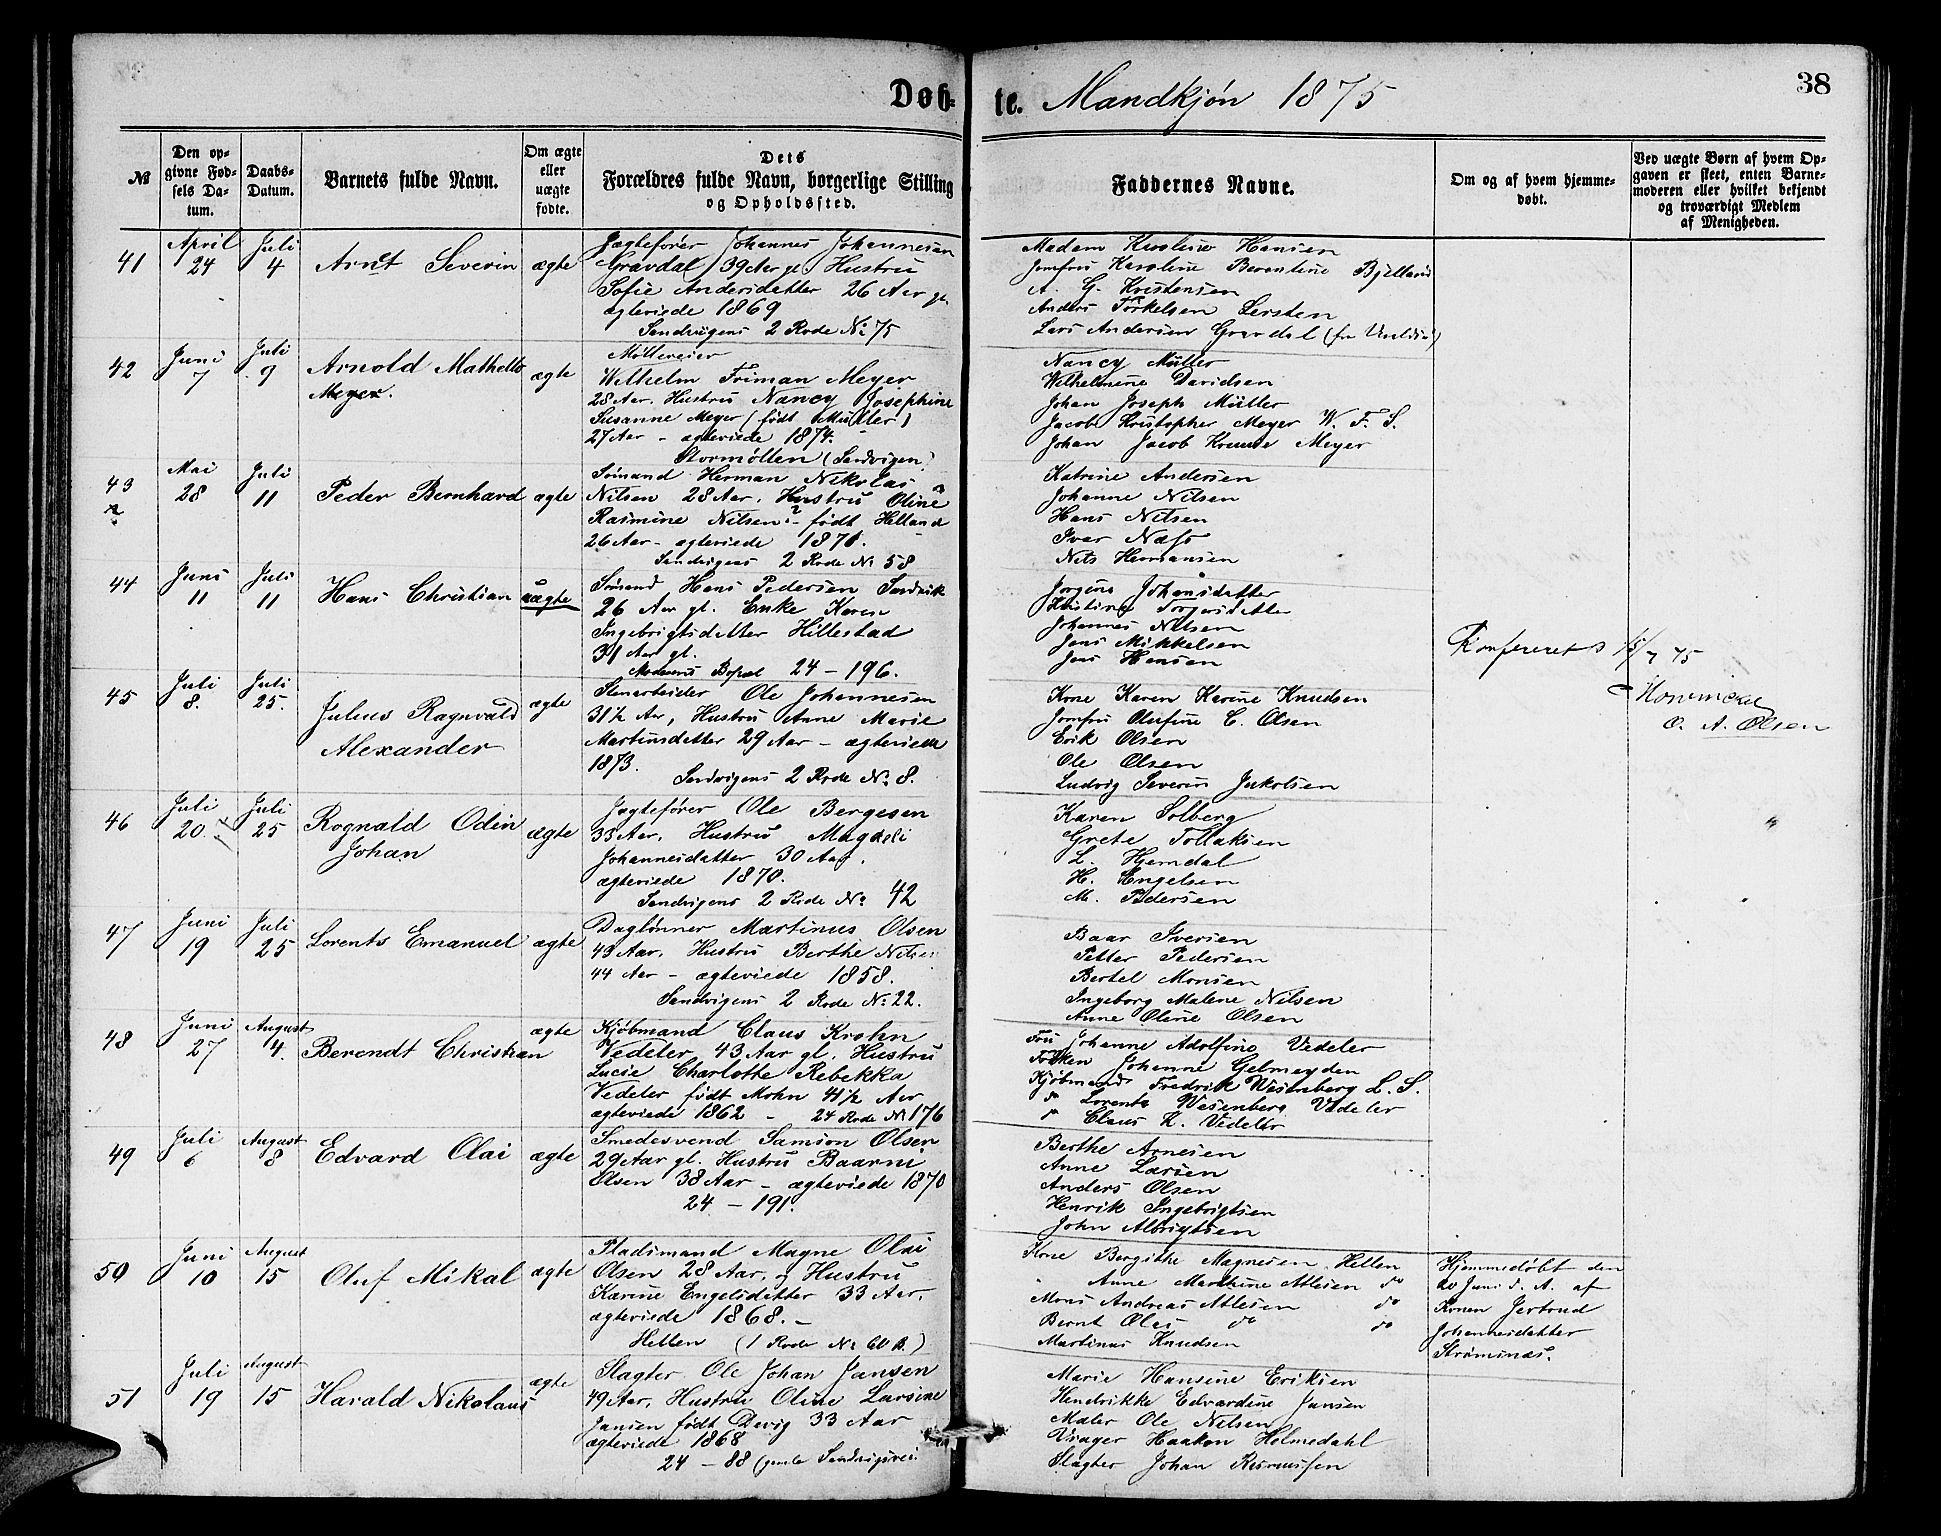 Døbte. Mandkjøn 1875
38
№
Den opgivne Fødsels Datum.
Daabs-Datum.
Barnets fulde Navn.
Om ægte eller uægte fødte.
Dets Forældres fulde Navn, borgerlige Stilling og Opholdssted.
Faddernes Navne.
Om og af hvem hjemmedøbt.
Ved uægte Børn af hvem Opgaven er skeet, enten Barnemoderen eller hvilket bekjendt og troværdigt Medlem af Menigheden.
41
April 24
Juli 4
Arnt Severin
ægte
Jægtefører Johannes Johannesen
Gravdal 39 Aar gl. Hustru
Sofie Andersdatter 26 Aar gl.
ægteviede 1869
Sandvigens 2 Rode No 75
Madam Karoline Hansen
Jomfru Karoline Berentine Bjelland
A. G. Kristensen
Anders Torkelsen Lersten
Lars Andersen Gravdal
42
Juni 7
Juli 9
Arnold Mathello
Meyer.
ægte
Mølleeier
Wilhelm Friman Meyer
28 Aar. Hustru Nancy Josephine
Susanne Meyer (født Müller)
27 Aar - ægteviede 1874.
Stormøllen (Sandvigen)
Nancy Müller
Wilhelmine Davidsen
Johan Joseph Müller
Jacob Kristopher Meyer W. F. S.
Johan Jacob Krause Meyer
43
Mai 28
Juli 11
Peder Bernhard
ægte
Sømand Herman Nikolai
Nilsen 28 Aar. Hustru Oline
Rasmine Nilsen - født Helland
26 Aar - ægteviede 1870.
Sandvigens 2 Rode No 58
Katrine Andersen
Johanne Nilsen
Hans Nilsen
Ivar Næss
Nils Hermansen
44
Juni 11
Juli 11
Hans Christian
uægte
Sømand Hans Pedersen Sandvik
26 Aar gl. Enke Karen
Ingebrigtsdatter Hillestad
31 Aar gl.
Moderens Bopæl 24 - 196.
Jørgine Johansdatter
Kristine Torgersdatter
Johannes Nilsen
Jens Mikkelsen
Jens Hansen
Konfereret 15/7 75
O. A. Olsen
45
Juli 8.
Juli 25.
Julius Ragnvald
Alexander
ægte
Stenarbeider Ole Johannesen
31½ Aar, Hustru Anne Marie
Martinsdatter 29 Aar - ægteviede
1873.
Sandvigens 2 Rode No 8.
Kone Karen Karine Knudsen
Jomfru Olufine C. Olsen
Erik Olsen
Ole Olsen
Ludvig Severin Jakobsen
46
Juli 20.
Juli 25
Rognald Odin
Johan
ægte
Jægtefører Ole Bergesen
33 Aar. Hustru Magdeli
Johannesdatter 30 Aar.
ægteviede 1870.
Sandvigens 2 Rode No 42
Karen Solberg
Grete Tollaksen
L. Hjemdal
H. Engelsen
M. Pedersen
47
Juni 19
Juli 25
Lorents Emanuel
ægte
Daglønner Martinus Olsen
43 Aar. Hustru Berthe Nilsen
44 Aar - ægteviede 1858.
Sandvigens 2 Rode No 22.
Baar Iversen
Petter Pedersen
Bertel Monsen
Ingeborg Malene Nilsen
Anne Oline Olsen
48
Juni 27
August 4.
Berendt Christian
ægte
Kjøbmand Claus Krohn
Vedeler 43 Aar gl. Hustru
Lucie Charlotte Rebekka
Vedeler født Mohn 41½ Aar
ægteviede 1862 - 24 Rode No 176
Fru Johanne Adolfine Vedeler
Frøken Johanne Gelmeyden
Kjøbmand Fredrik Wesenberg L. S.
do Lorentz Wesenberg Vedeler
do Claus K. Vedeler
49
Juli 6
August 8
Edvard Olai
ægte
Smedesvend Samson Olsen
29 Aar gl. Hustru Baarni
Olsen 38 Aar - ægteviede 1870
24 - 191.
Berthe Arnesen
Anne Larsen
Anders Olsen
Henrik Ingebrigtsen
John Albrigtsen
50
Juni 10
August 15
Oluf Mikal
ægte
Pladsmand Magne Olai
Olsen 28 Aar. og Hustru
Karine Engelsdatter 33 Aar.
ægteviede 1868. -
Hellen (1 Rode No 60 B.)
Kone Bergithe Magnesen Hellen
Anne Marthine Atlesen do
Mons Andreas Atlesen do
Bernt Olai do do
Martinus Knudsen
Hjemmedøbt den
20 Juni d. A. af
Konen Jertrud
Johannesdatter
Strømsnæs.
51
Juli 19
August 15
Harald Nikolaus
ægte
Slagter Ole Johan Jansen
49 Aar, Hustru Oline Larsine
Jansen født Devig 33 Aar
ægteviede 1868
24 - 88 (gamle Sandvigsvei
Marie Hansine Eriksen
Hendrikke Edvardine Jansen
Maler Ole Nilsen
Vrager Haakon Holmedahl
Slagter Johan Rasmussen